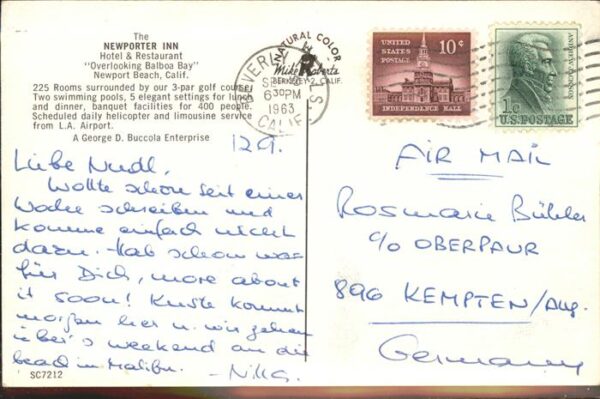 The
NEWPORTER INN
Hotel & Restaurant
"Overlooking Balboa Bay"
Newport Beach, Calif.
225 Rooms surrounded by our 3-par golf course.
Two swimming pools, 5 elegant settings for lunch
and dinner, banquet facilities for 400 people.
Scheduled daily helicopter and limousine service
from L.A. Airport.
A George D. Buccola Enterprise
NATURAL COLOR
Mike Roberts
BERKELEY 2, CALIF.
BEVERLY HILLS
SEP
6 30 PM
1963
CALIF
UNITED STATES POSTAGE
10¢
INDEPENDENCE HALL
ANDREW JACKSON
1¢
U.S. POSTAGE
12.9.
Liebe Nudl,
Wollte schon seit einer
Woche schreiben und
komme einfach nicht
dazu. Hab schon was
für Dich, more about
it soon! kommt
morgen her u. wir gehen
über's weekend an die
beach in Malibu.
AIR MAIL
Rosmarie Bühler
c/o OBERPAUR
896 KEMPTEN/Allg.
Germany
SC7212